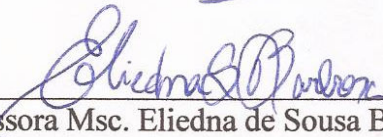 Eliedna S Barbosa
ssora Msc. Eliedna de Sousa B